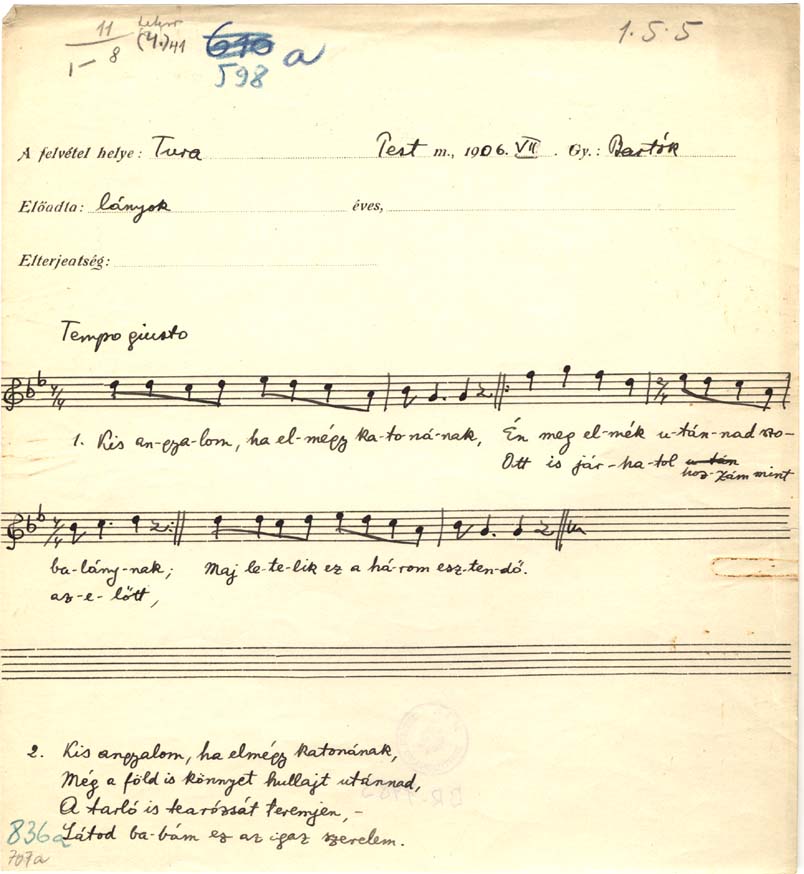 11
1 – 8
(4.) 41
598 a
1.5.5
A felvétel helye: Tura Pest m., 1906. VII. Gy.: Bartók
Előadta: lányok éves,
Elterjedtség:
Tempo giusto
1. Kis an-gya-lom, ha el-mégy ka-to-ná-nak, Én meg el-mék u-tán-nad szo-
Ott is jár-ha-tol hoz-zám mint
ba-lány-nak; Maj le-te-lik ez a há-rom esz-ten-dő.
az-e-lőtt,
2. Kis angyalom, ha elmégy katonának,
Még a föld is könnyet hullajt utánnad,
A tarló is karózsát teremjen, –
Látod ba-bám ez az igaz szerelem.
836a
707a